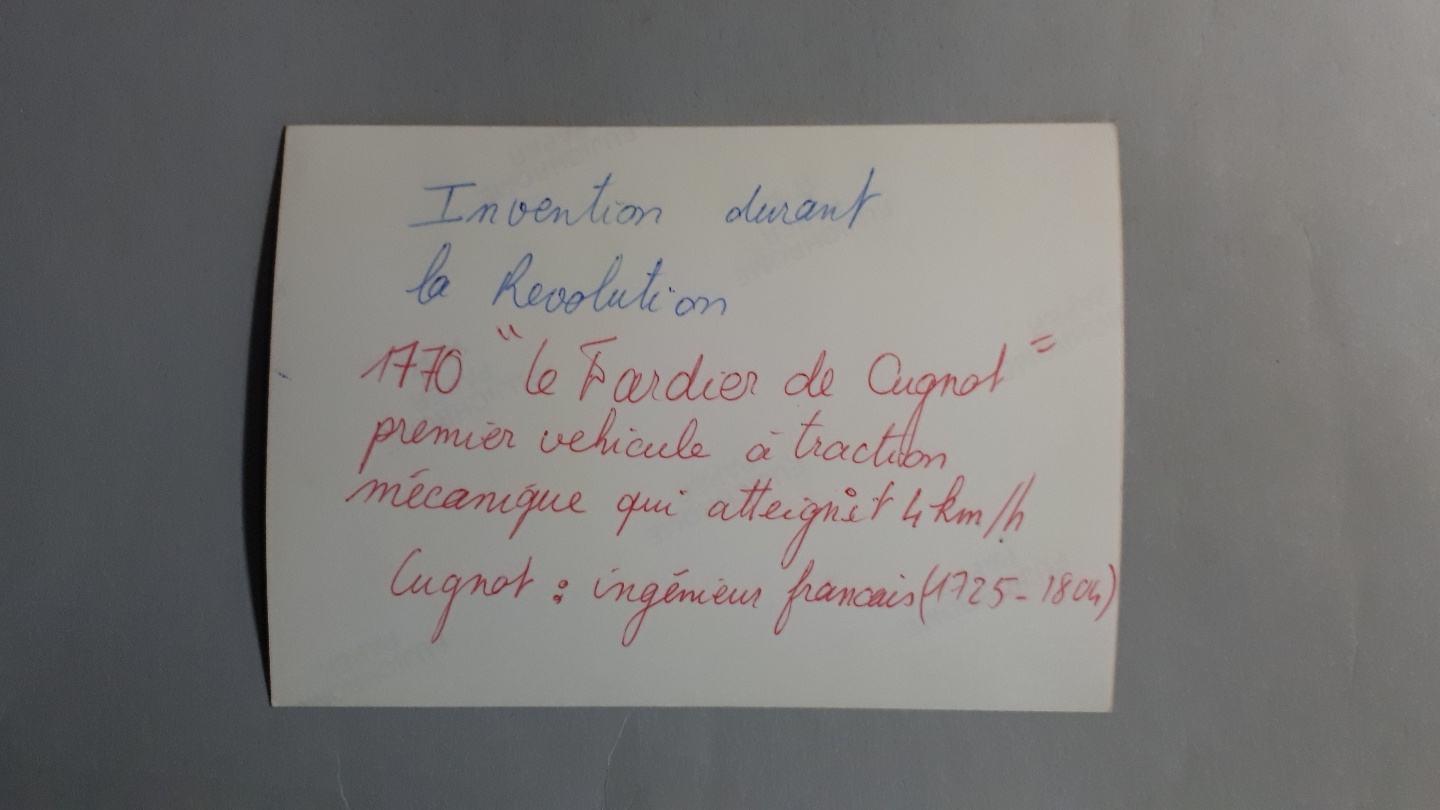 Invention durant
la Revolution
1770 "le Fardier de Cugnot"
premier vehicule à traction
mécanique qui atteignit 4 km/h
Cugnot : ingénieur francais (1725-1804)